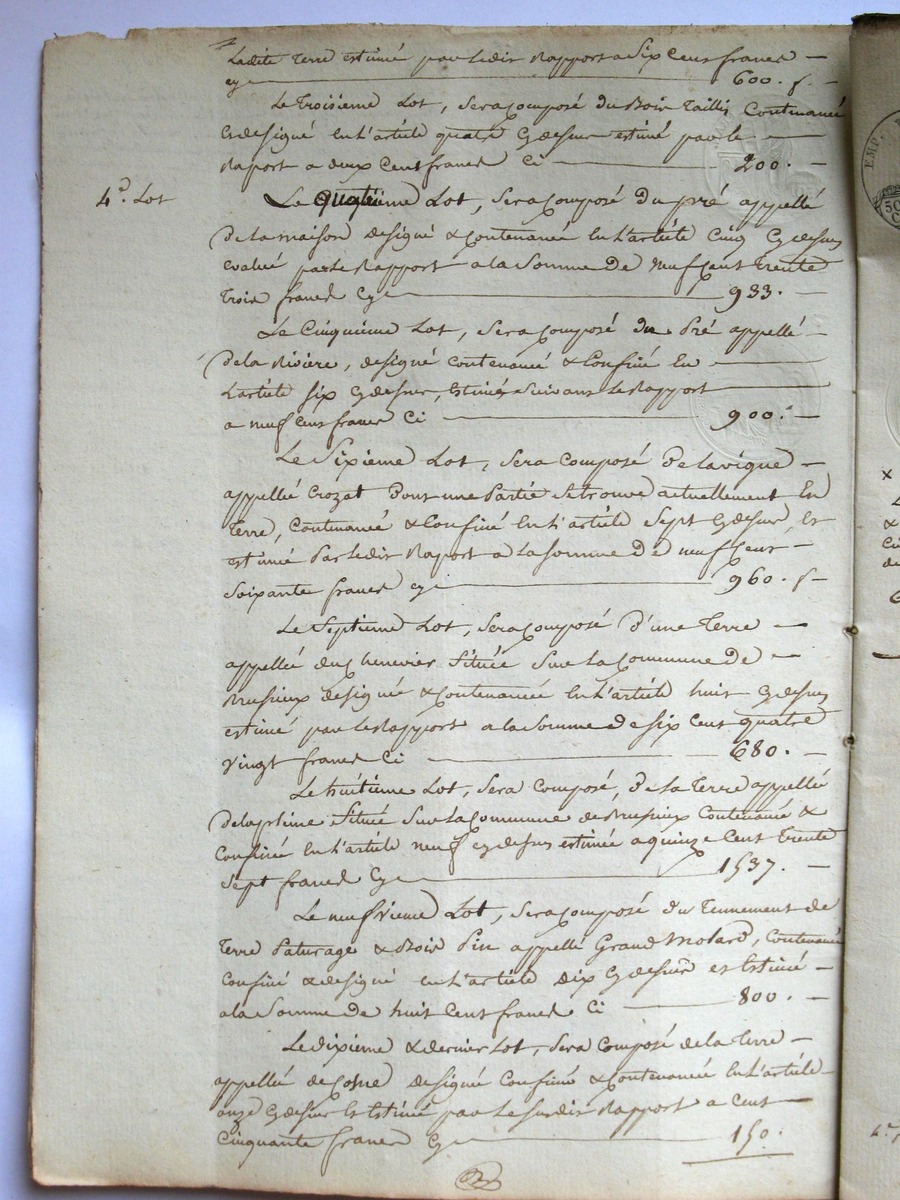 Ladite Terre estimée par ledit Rapport a Six Cent francs —
cy — 600. f. —
Le Troisieme Lot, Sera Composé du Bois Taillis Contenancé
& designé en L'article quatre Cydessus estimé par le —
Raport a deux Cent francs Ci — 200. —
4e. Lot
Le quatrieme Lot, Sera Composé Du pré appellé
De la maison designé & Contenancé En L'article Cinq Cydessus
evalué par le Rapport a la Somme De Neuf Cent Trente
Trois francs Cy — 933. —
Le Cinquieme Lot, Sera Composé du Pré appellé —
De la Riviere, designé Contenancé & Confiné En —
L'article Six Cydessus, Estimé Suivant Le Rapport —
a neuf Cent francs Ci — 900. —
Le Sixieme Lot, Sera Composé De la vigne —
appellée Crozat Dont une Partie Se trouve actuellement En
Terre, Contenancée & Confinée En L'article Sept Cydessus, Et
estimée Par Ledit Raport a La Somme De neuf Cent —
Soixante francs cy — 960. f —
Le Septieme Lot, Sera Composé D'une Terre —
appellée du Chenevier Située Sur La Commune De —
Brusieux designée & Contenancée En L'article huit Cydessus
estimée par le Rapport a la Somme de Six Cent quatre
vingt francs Ci — 680. —
Le huitieme Lot, Sera Composé, De la Terre appellée
De la plaine Située Sur La Commune de Brusieux Contenancée &
Confinée En L'article neuf cydessus estimée a quinze Cent Trente
Sept francs Cy — 1537. —
Le neufvieme Lot, Sera Composé Du Tennement de
Terre Paturage & Bois Pin appellé Grand Molard, Contenancé
Confiné & designé en L'article Dix Cydessus et Estimé —
a la Somme de huit Cent francs Ci — 800. —
Le dixieme & dernier Lot, Sera Composé de la Terre —
appellée de Cosne designée Confinée & Contenancée En L'article
onze Cydessus Et Estimée par Le Susdit Rapport a Cent —
Cinquante francs Cy — 150.